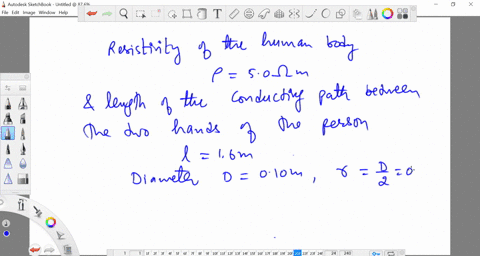 Autodesk SketchBook - Untitled @ 87.6%
Resistivity of the human body
ρ = 5.0 Ω m
& length of the conducting path between
the two hands of the person
l = 1.6 m
Diameter D = 0.10 m, r = D/2 = 0.